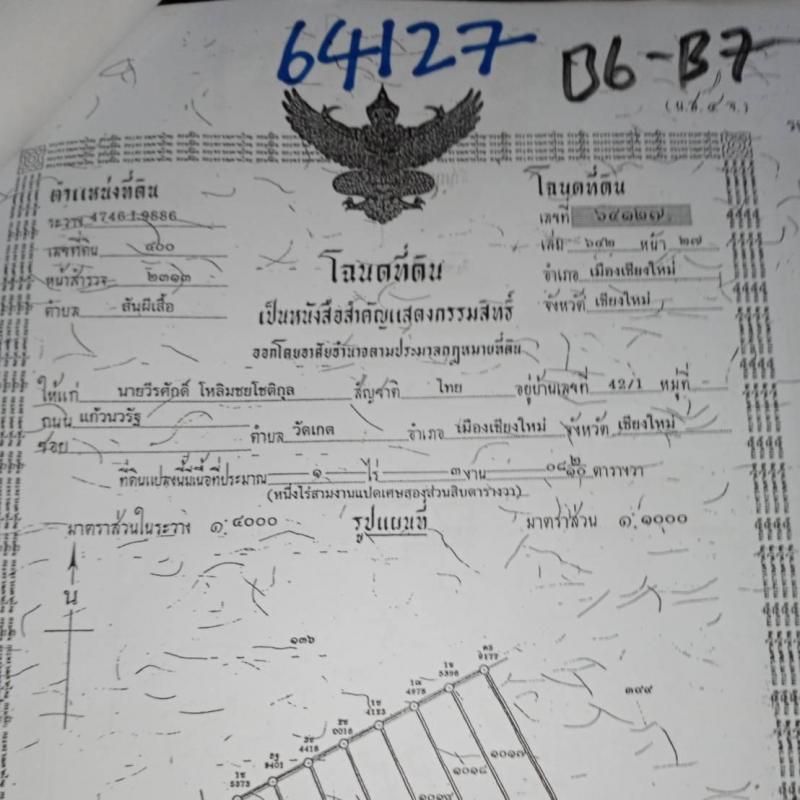 64127 B6-B7
(น.ส.๔ จ.)
ตำแหน่งที่ดิน
ระวาง 4746 I 9886
เลขที่ดิน ๔๐๐
หน้าสำรวจ ๒๓๑๓
ตำบล สันผีเสื้อ
โฉนดที่ดิน
เลขที่ ๖๔๑๒๗
เล่ม ๖๔๒ หน้า ๒๗
อำเภอ เมืองเชียงใหม่
จังหวัด เชียงใหม่
โฉนดที่ดิน
เป็นหนังสือสำคัญแสดงกรรมสิทธิ์
ออกโดยอาศัยอำนาจตามประมวลกฎหมายที่ดิน
ให้แก่ นายวีรศักดิ์ โหลิมชยโชติกุล สัญชาติ ไทย อยู่บ้านเลขที่ 42/1 หมู่ที่
ถนน แก้วนวรัฐ
ซอย ตำบล วัดเกต อำเภอ เมืองเชียงใหม่ จังหวัด เชียงใหม่
ที่ดินแปลงนี้มีเนื้อที่ประมาณ ๑ ไร่ ๓ งาน ๐๘ ๒/๑๐ ตารางวา
(หนึ่งไร่สามงานแปดเศษสองส่วนสิบตารางวา)
มาตราส่วนในระวาง ๑:๔๐๐๐ รูปแผนที่ มาตราส่วน ๑:๑๐๐๐
น
๑๓๖
๓๙๙
9177
5398
4978
4123
0018
4418
9401
5373
๑๐๑๗
๑๐๑๘
๑๐๑๙